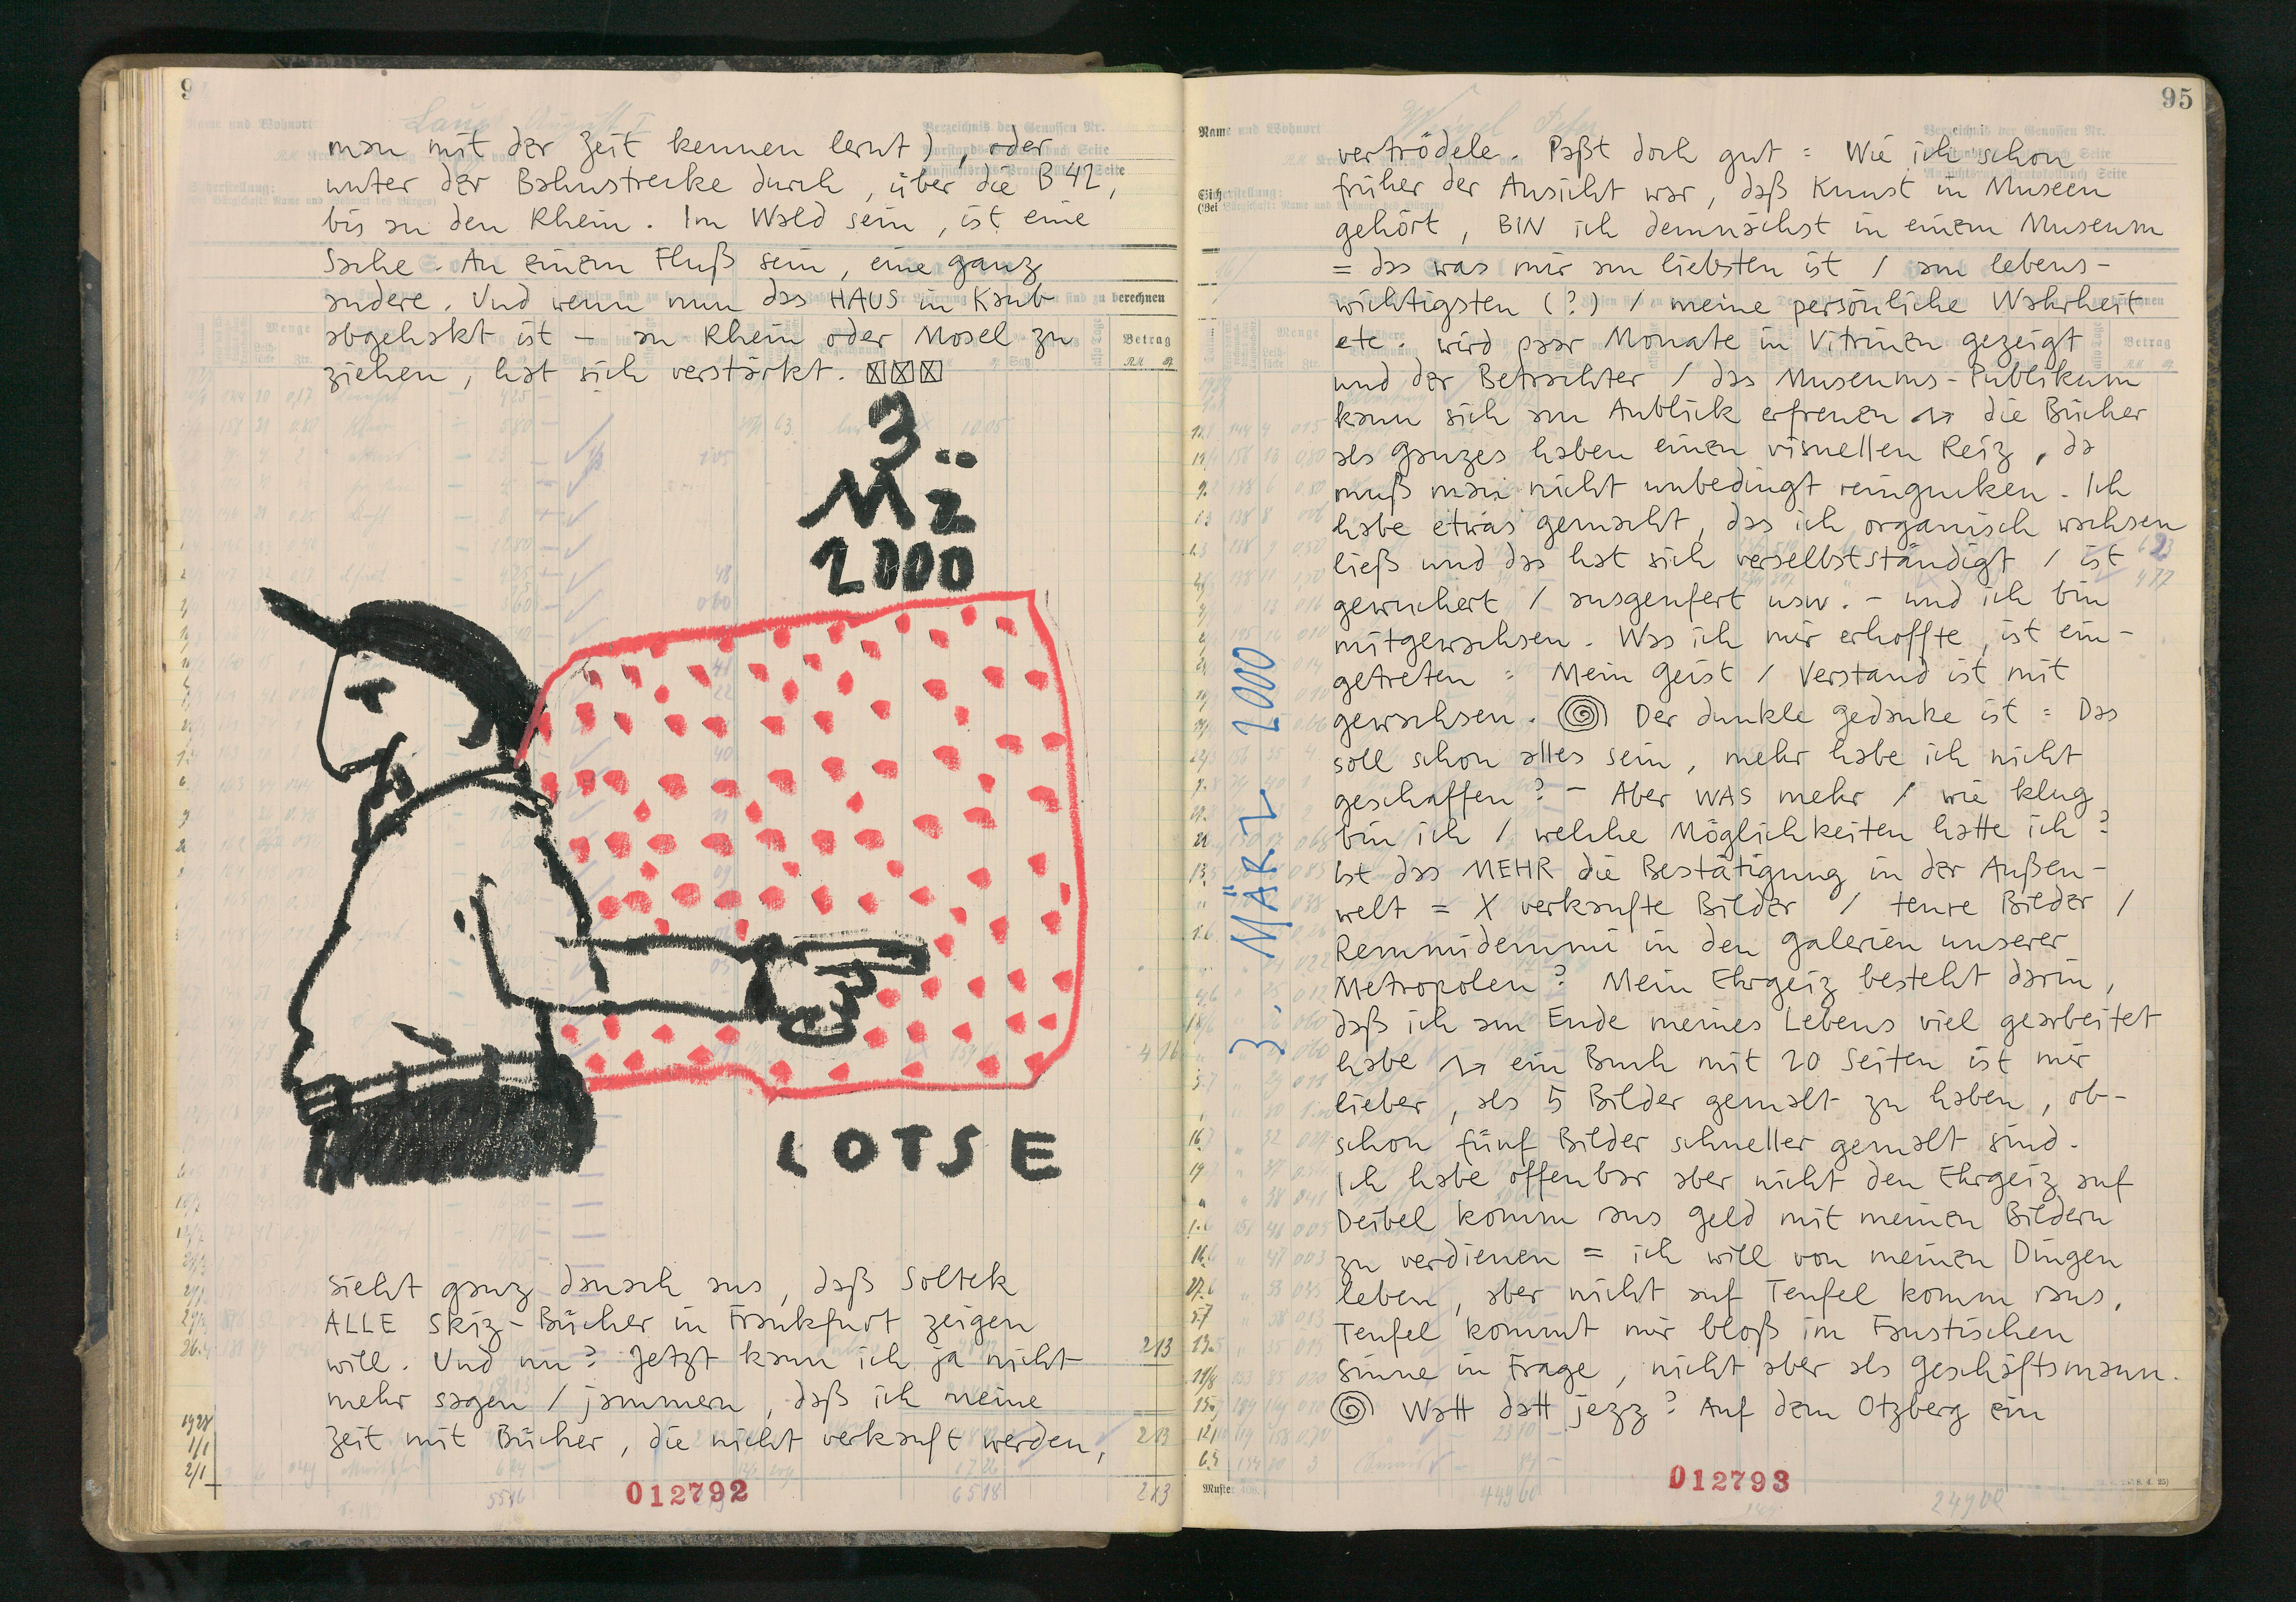 man mit der Zeit kennen lernt), oder
unter der Bahnstrecke durch, über die B 42,
bis an den Rhein. Im Wald sein, ist eine
Sache. An einem Fluß sein, eine ganz
andere. Und wenn nun das HAUS in Kaub
abgehakt ist – an Rhein oder Mosel zu
ziehen, hat sich verstärkt.
3.
MÄRZ
2000
LOTSE
Sieht ganz danach aus, daß Soltek
ALLE Skiz-Bücher in Frankfurt zeigen
will. Und nu? Jetzt kann ich ja nicht
mehr sagen / jammern, daß ich meine
Zeit mit Bücher, die nicht verkauft werden,
012792
95
Name und Wohnort
Verzeichnis der Genossen Nr.
3. MÄRZ 2000
vertrödele. Paßt doch gut = Wie ich schon
früher der Ansicht war, daß Kunst in Museen
gehört, BIN ich demnächst in einem Museum
= das was mir am liebsten ist / am lebens-
wichtigsten (?) / meine persönliche Wahrheit
etc. wird paar Monate in Vitrinen gezeigt
und der Betrachter / das Museums-Publikum
kann sich am Anblick erfreuen → die Bücher
als ganzes haben einen visuellen Reiz, da
muß man nicht unbedingt reingucken. Ich
habe etwas gemacht, das ich organisch wachsen
ließ und das hat sich verselbstständigt / ist
gewuchert / ausgeufert usw. – und ich bin
mitgewachsen. Was ich mir erhoffte, ist ein-
getreten = Mein Geist / Verstand ist mit
gewachsen. Der dunkle Gedanke ist = Das
soll schon alles sein, mehr habe ich nicht
geschaffen? – Aber WAS mehr / wie klug
bin ich / welche Möglichkeiten hatte ich?
Ist das MEHR die Bestätigung in der Außen-
welt = X verkaufte Bilder / teure Bilder /
Remmidemmi in den Galerien unserer
Metropolen? Mein Ehrgeiz besteht darin,
daß ich am Ende meines Lebens viel gearbeitet
habe → ein Buch mit 20 Seiten ist mir
lieber, als 5 Bilder gemalt zu haben, ob-
schon fünf Bilder schneller gemalt sind.
Ich habe offenbar aber nicht den Ehrgeiz auf
Deibel komm raus Geld mit meinen Bildern
zu verdienen = ich will von meinen Dingen
leben, aber nicht auf Teufel komm raus,
Teufel kommt mir bloß im Faustischen
Sinne in Frage, nicht aber als Geschäftsmann.
Watt datt jezz? Auf dem Otzberg ein
012793